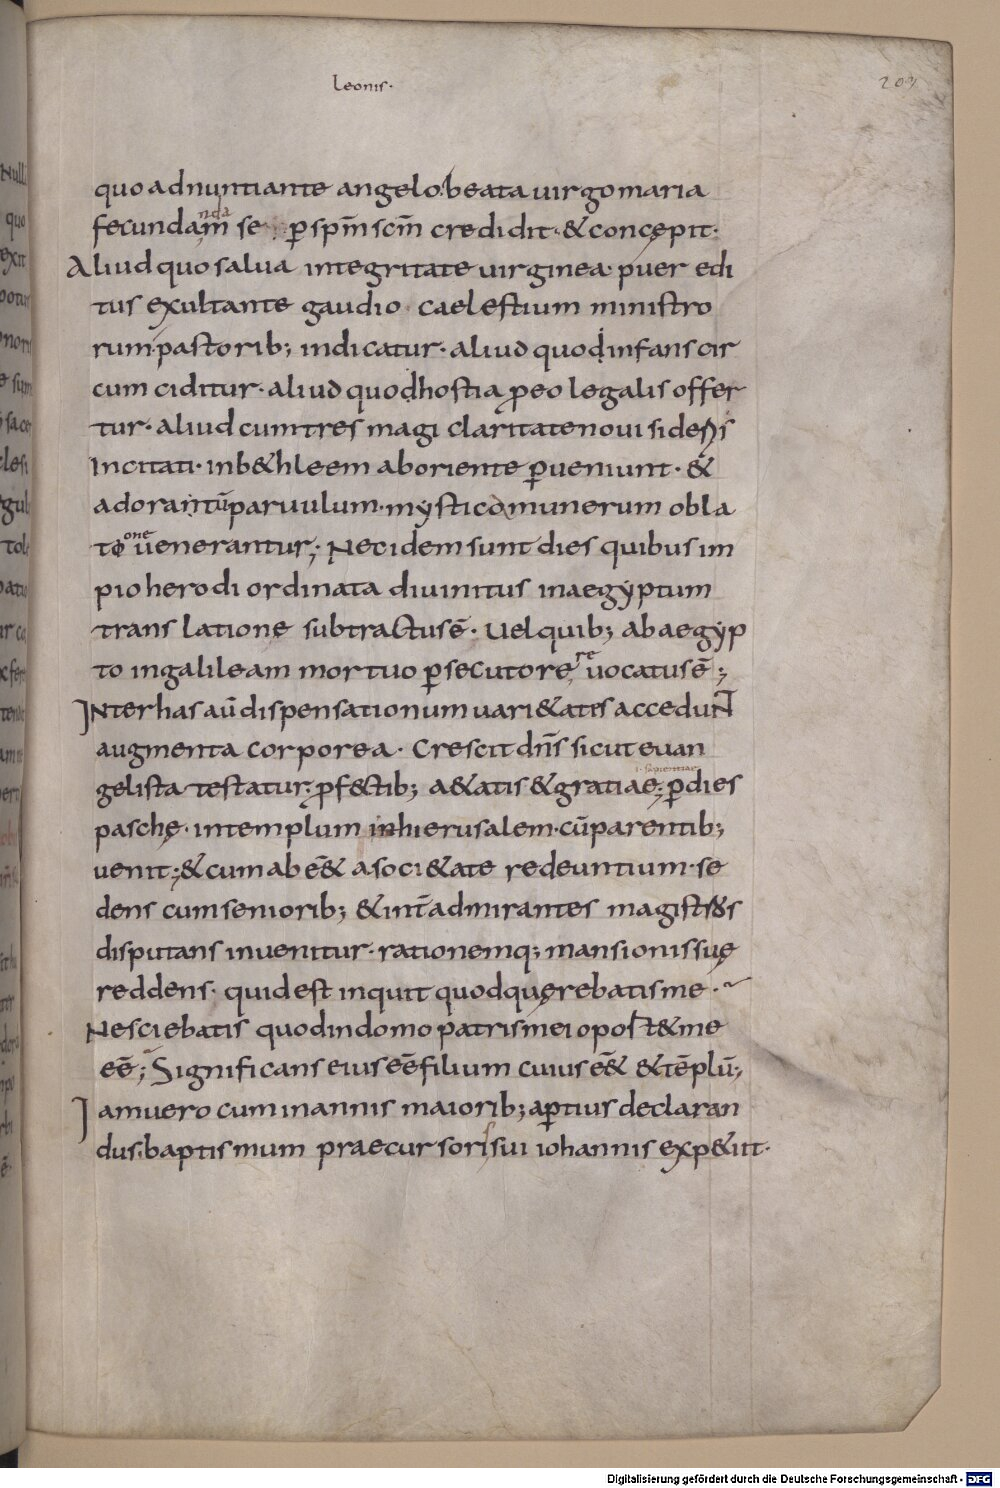 leonis·
203
quo adnuntiante angelo beata uirgo maria
fecundam̄ nda se p̱ sp̄m sc̄m credidit · & concępit·
Aliud quo salua integritate uirginea· puer edi
tus exultante gaudio · caelestium ministro
rum· pastorib; indicatur · aliud quod infans cir
cum ciditur · aliud quod hostia p̱ eo legalis offer
tur · aliud cum tres magi claritate noui sideris
Incitati · in b&hleem ab oriente p̱ueniunt · &
adorantū paruulum· mystico munerum obla
tio one uenerantur; Nec idem sunt dies quibus im
pio herodi ordinata diuinitus in aegyptum
translatione subtractus ē · Uel quib; ab aegyp
to in galileam mortuo p̱secutore, re uocatus ē ;
Inter has aū dispensationum uari&ates accedunt
augmenta corporea · Crescit dn̄s sicut euan
i· sapientiae
gelista testatur; p̱f&tib; a&atis & gratiae; p̱ dies
paschę · in templum in hierusalem · cū parentib;
uenit; & cum ab e&̄ a soci&ate redeuntium · se
dens cum seniorib; & int̄ admirantes magistros
disputans inuenitur · rationemq; mansionis suę
reddens · quid est inquit quod quęrebatis me ·
Nesciebatis quod in domo patris mei oport& me
eē; Significans eius eē filium cuius e&̄ & tēplū;
Iam uero cum in annis maiorib; ap̱tius declaran
dus· baptismum praecursoris sui iohannis exp&iit·
Digitalisierung gefördert durch die Deutsche Forschungsgemeinschaft - DFG